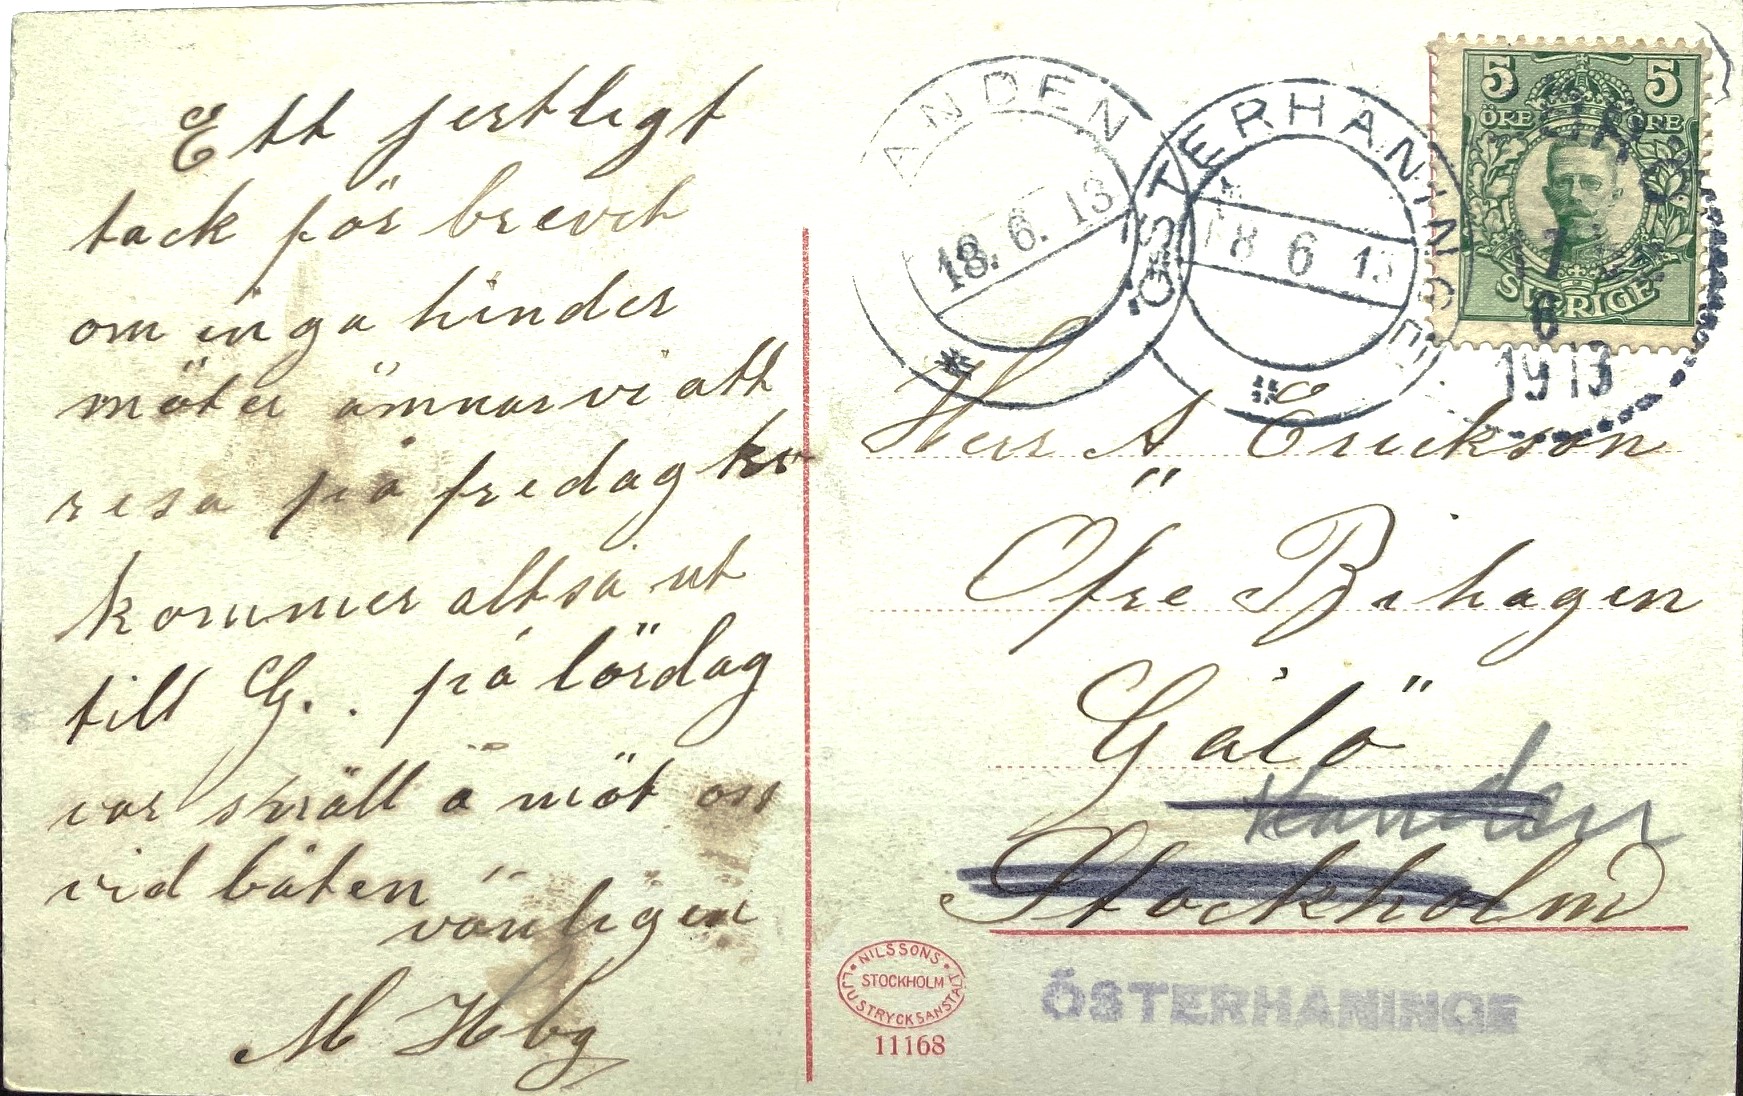 Ett jertligt
tack för brevet
om inga hinder
möter ämnar vi att
resa på fredag kv
kommer altså ut
till G.. på lördag
var snäll å möt oss
vid båten
vänligen
M Hbg
ANDEN
18.6.13
ÖSTERHANINGE
18 6 13
5 5
ÖRE ÖRE
SVERIGE
17
6
1913
Herr A Erickson
Öfre Bihagen
Gålö
Handen
Stockholm
NILSSONS
STOCKHOLM
LJUSTRYCKSANSTALT
11168
ÖSTERHANINGE